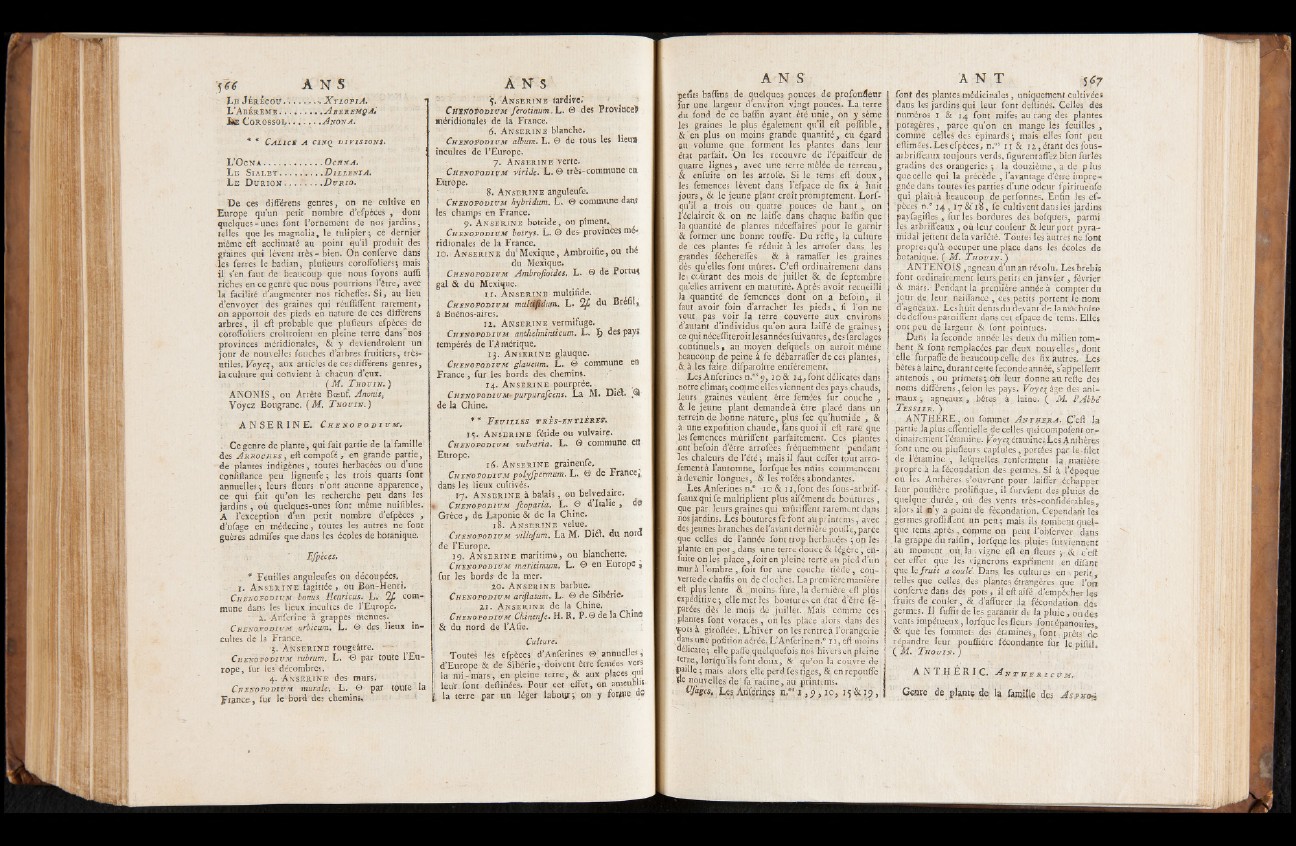 566 ANS
LE JÉRÉCOU........XYLOPIA.
L'ABÉRÈME.........ABEREMOA.
LE COROSSOL.......ANONA.
* * CALICE A CINQ DIVISIONS.
L'OCNA............OCHNA.
LE SIALET.........DILLENIA.
LE DURION.........DURIO.
De ces différens genres, on ne cultive en
Europe qu'un petit nombre d'espèces, dont
quelques-unes font l'ornement de nos jardins,
telles que les magnolia, le tulipier; ce dernier
même est acclimaté au point qu'il produit des
graines qui lèvent très-bien. On conserve dans
les serres le badian, plusieurs corossoliers; mais
il s'en faut de beaucoup que nous soyons aussi
riches en ce genre que nous pourrions l'être, avec
la facilité d'augmenter nos richesses. Si, au lieu
d'envoyer des graines qui réussissent rarement,
on apportoit des pieds en nature de ces différens
arbres, il est probable que plusieurs espèces de
corossoliers croîtroient en pleine terre dans nos
provinces méridionales, & y deviendroient un
jour de nouvelles souches d'arbres fruitiers, très-
utiles. Voyez, aux articles de ces différens genres,
la culture qui convient à chacun d'eux.
( M. THOUIN. )
ANONIS, ou Arrête Bœuf. Anonis,
Voyez Bougrane. ( M. THOUIN. )
ANSERINE. CHENOPODIUM.
Ce genre de plante, qui fait partie de la famille
des ARROCHES, est composé, en grande partie,
de plantes indigènes, toutes herbacées ou d'une
consistance peu ligneuse; les trois quarts sont
annuelles; leurs fleurs n'ont aucune apparence,
ce qui fait qu'on les recherche peu dans les
jardins, où quelques-unes sont même nuisibles.
A l'exception d'un petit nombre d'espèces,
d'usage en médecine, toutes les autres ne sont
guères admises que dans les écoles de botanique.
Espèces.
* Feuilles anguleuses ou découpées.
1. ANSERINE sagittée, ou Bon-Henri.
CHENOPODIUM bonus Henricus. L. ♃ com-
mune dans les lieux incultes de l'Europe.
2. Anserine à grappes menues.
CHENOPODIUM urbicum. L. ☉ des lieux in-
cultes de la France.
3. ANSERINE rougeâtre.
CHENOPODIUM rubrum. L. ☉ par toute l'Eu-
rope, sur les décombres.
4. ANSERINE des murs.
CHENOPODIUM murale. L. ☉ par toute la
France, sur le bord des chemins.
ANS
5. ANSERINE tardive.
CHENOPODIUM serotinum. L. ☉ des Provinces
méridionales de la France.
6. ANSERINE blanche.
CHENOPODIUM album. L. ☉ de tous les lieux
incultes de l'Europe.
7. ANSERINE verte.
CHENOPODIUM viride. L. ☉ très-commune en
Europe.
8. ANSERINE anguleuse.
CHENOPODIUM hybridum. L. ☉ commune dans
les champs en France.
9. ANSERINE botride, ou piment.
CHENOPODIUM botrys. L. ☉ des provinces mé-
ridionales de la France.
10. ANSERINE du Mexique, Ambroisie, ou thé
du Mexique.
CHENOPODIUM Ambrosioides. L. ☉ de Portu-
gal & du Mexique.
11. ANSERINE multifide.
CHENOPODIUM multifidum. L. ♃ du Brésil,
à Buénos-aires.
12. ANSERINE vermifuge.
CHENOPODIUM anthelminticum. L. ♄ des pays
tempérés de l'Amérique.
13. ANSERINE glauque.
CHENOPODIUM glaucum. L. ☉ commune en
France, sur les bords des chemins.
14. ANSERINE pourprée.
CHENOPODIUM purpurascens. La M. Dict. ☉
de la Chine.
* * FEUILLES TRÈS-ENTIÈRES.
15. ANSERINE fétide ou vulvaire.
CHENOPODIUM vulvaria. L. ☉ commune en
Europe.
16. ANSERINE graineuse.
CHENOPODIUM polyspermum. L. ☉ de France,
dans les lieux cultivés.
17. ANSERINE à balais, ou belvedaire.
CHENOPODIUM scoparia. L. ☉ d'Italie, de
Grèce, de Laponie & de la Chine.
18. ANSERINE velue.
CHENOPODIUM villosum. La M. Dict. du nord
de l'Europe.
19. ANSERINE maritime, ou blanchette.
CHENOPODIUM maritimum. L. ☉ en Europe,
sur les bords de la mer.
20. ANSERINE barbue.
CHENOPODIUM aristatum. L. ☉ de Sibérie.
21. ANSERINE de la Chine.
CHENOPODIUM Chinense. H. R. P. ☉ de la Chine
& du nord de l'Asie.
Culture.
Toutes les espèces d'Anserines ☉ annuelles,
d'Europe & de Sibérie, doivent être semées vers
la mi-mars, en pleine terre, & aux places qui
leur sont destinées. Pour cet effet, on ameublit
la terre par un léger labour; on y forme de
ANS
petits bassins de quelques pouces de profondeur
sur une largeur d'environ vingt pouces. La terre
du fond de ce bassin ayant été unie, on y sème
les graines le plus également qu'il est possible,
& en plus ou moins grande quantité, eu égard
au volume que forment les plantes dans leur
état parfait. On les recouvre de l'épaisseur de
quatre lignes, avec une terre mêlée de terreau,
& ensuite on les arrose. Si le tems est doux,
les semences lèvent dans l'espace de six à huit
jours, & le jeune plant croît promptement. Lors-
qu'il a trois ou quatre pouces de haut, on
l'éclaircit & on ne laisse dans chaque bassin que
la quantité de plantes nécessaires pour le garnir
& former une bonne touffe. Du reste, la culture
de ces plantes se réduit à les arroser dans les
grandes sécheresses & à ramasser les graines
dès qu'elles sont mûres. C'est ordinairement dans
le courant des mois de juillet & de septembre
qu'elles arrivent en maturité. Après avoir recueilli
la quantité de semences dont on a besoin, il
faut avoir soin d'arracher les pieds, si l'on ne
veut pas voir la terre couverte aux environs
d'autant d'individus qu'on aura laissé de graines;
ce qui nécessiteroit les années suivantes, des sarclages
continuels, au moyen desquels on auroit même
beaucoup de peine à se débarrasser de ces plantes,
& à les faire disparoître entièrement.
Les Anserines n.os 9, 10 & 14, sont délicates dans
notre climat; comme elles viennent des pays chauds,
leurs graines veulent être semées sur couche,
& le jeune plant demande à être placé dans un
terrein de bonne nature, plus sec qu'humide, &
à une exposition chaude, sans quoi il est rare que
les semences mûrissent parfaitement. Ces plantes
ont besoin d'être arrosées fréquemment pendant
les chaleurs de l'été; mais il faut cesser tout arro-
sement à l'automne, lorsque les nuits commencent
à devenir longues, & les rosées abondantes.
Les Anserines n.os 10 & 12, sont des sous-arbris-
seaux qui se multiplient plus aisément de boutures,
que par leurs graines qui mûrissent rarement dans
nos jardins. Les boutures se font au printems, avec
des jeunes branches de l'avant dernière pousse, parce
que celles de l'année sont trop herbacées; on les
plante en pot, dans une terre douce & légère, en-
suite on les place, soit en pleine terre au pied d'un
mur à l'ombre, soit sur une couche tiède, cou-
verte de chassis ou de cloches. La première manière
est plus lente & moins sûre, la dernière est plus
expéditive; elle met les boutures en état d'être sé-
parées dès le mois de juillet. Mais comme ces
plantes sont voraces, on les place alors dans des
pots à giroflées. L'hiver on les rentre à l'orangerie
dans une position aérée. L'Anserine n.° 11, est moins
délicate; elle passe quelquefois nos hivers en pleine
terre, lorsqu'ils sont doux, & qu'on la couvre de
paille; mais alors elle perd ses tiges, & en repousse
de nouvelles de sa racine, au printems.
Usages. Les Anserines n.os 1, 9, 10, 15 & 19,
ANT 567
sont des plantes médicinales, uniquement cultivées
dans les jardins qui leur sont destinés. Celles des
numéros 1 & 14 sont mises au rang des plantes
potagères, parce qu'on en mange les feuilles,
comme celles des épinards; mais elles sont peu
estimées. Les espèces, n.os 11 & 12, étant des sous-
arbrisseaux toujours verds, figurent assez bien sur les
gradins des orangeries; la douzième, a de plus
que celle qui la précède, l'avantage d'être impré-
gnée dans toutes ses parties d'une odeur spiritueuse
qui plaît à beaucoup de personnes. Enfin les es-
pèces n.os 14, 17 & 18, se cultivent dans les jardins
paysagistes, sur les bordures des bosquets, parmi
les arbrisseaux, où leur couleur & leur port pyra-
midal jettent de la variété. Toutes les autres ne sont
propres qu'à occuper une place dans les écoles de
botanique. ( M. THOUIN. )
ANTENOIS, agneau d'un an révolu. Les brebis
font ordinairement leurs petits en janvier, février
& mars. Pendant la première année à compter du
jour de leur naissance, ces petits portent le nom
d'agneaux. Les huit dents du devant de la mâchoire
de dessous paroissent dans cet espace de tems. Elles
ont peu de largeur & sont pointues.
Dans la seconde année les deux du milieu tom-
bent & sont remplacées par deux nouvelles, dont
elle surpasse de beaucoup celle des six autres. Les
bêtes à laine, durant cette seconde année, s'appellent
antenois, ou primets; où leur donne au reste des
noms différens, selon les pays. Voyez âge des ani-
maux, agneaux, bêtes à laine. ( M. l'Abbé
TESSIER. )
ANTHÈRE, ou sommet ANTHERA. C'est la
partie la plus essentielle de celles qui composent or-
dinairement l'étamine. Voyez étamine: Les Anthères
sont une ou plusieurs capsules, portées par le filet
de l'étamine, lesquelles renferment la matière
propre à la fécondation des germes. Si à l'époque
où les Anthères s'ouvrent pour laisser échapper
leur poussière prolifique, il survient des pluies de
quelque durée, ou des vents très-considérables,
alors il n'y a point de fécondation. Cependant les
germes grossissent un peu; mais ils tombent quel-
que tems après, comme on peut l'observer dans
la grappe du raisin, lorsque les pluies surviennent
au moment où la vigne est en fleurs; & c'est
cet effet que les vignerons expriment en disant
que le fruit a coulé. Dans les cultures en petit,
telles que celles des plantes étrangères que l'on
conserve dans des pots, il est aisé d'empêcher les
fruits de couler, & d'assurer la fécondation des
germes. Il suffit de les garantir de la pluie, ou des
vents impétueux, lorsque les fleurs sont épanouies,
& que les sommets des étamines, sont prêts de
répandre leur poussière fécondante sur le pistil.
( M. THOUIN. )
ANTHÉRIC. ANTHERICUM.
Genre de plante de la famille des ASPHO-